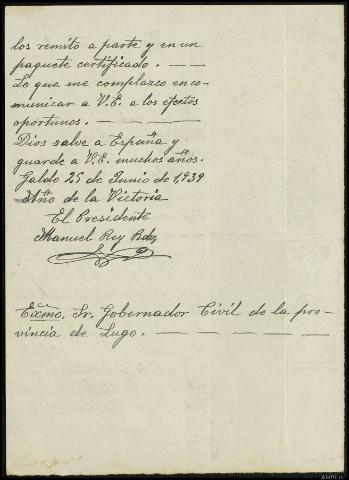 los remito a parte y en un
paquete certificado. — —
Lo que me complazco en co-
municar a V.E. a los efectos
oportunos. — — — —
Dios salve a España y
guarde a V.E. muchos años.
Galdo 25 de Junio de 1,939
Año de la Victoria
El Presidente
Manuel Rey
Excmo. Sr. Gobernador Civil de la pro-
vincia de Lugo. — — — — — —
AHPLU